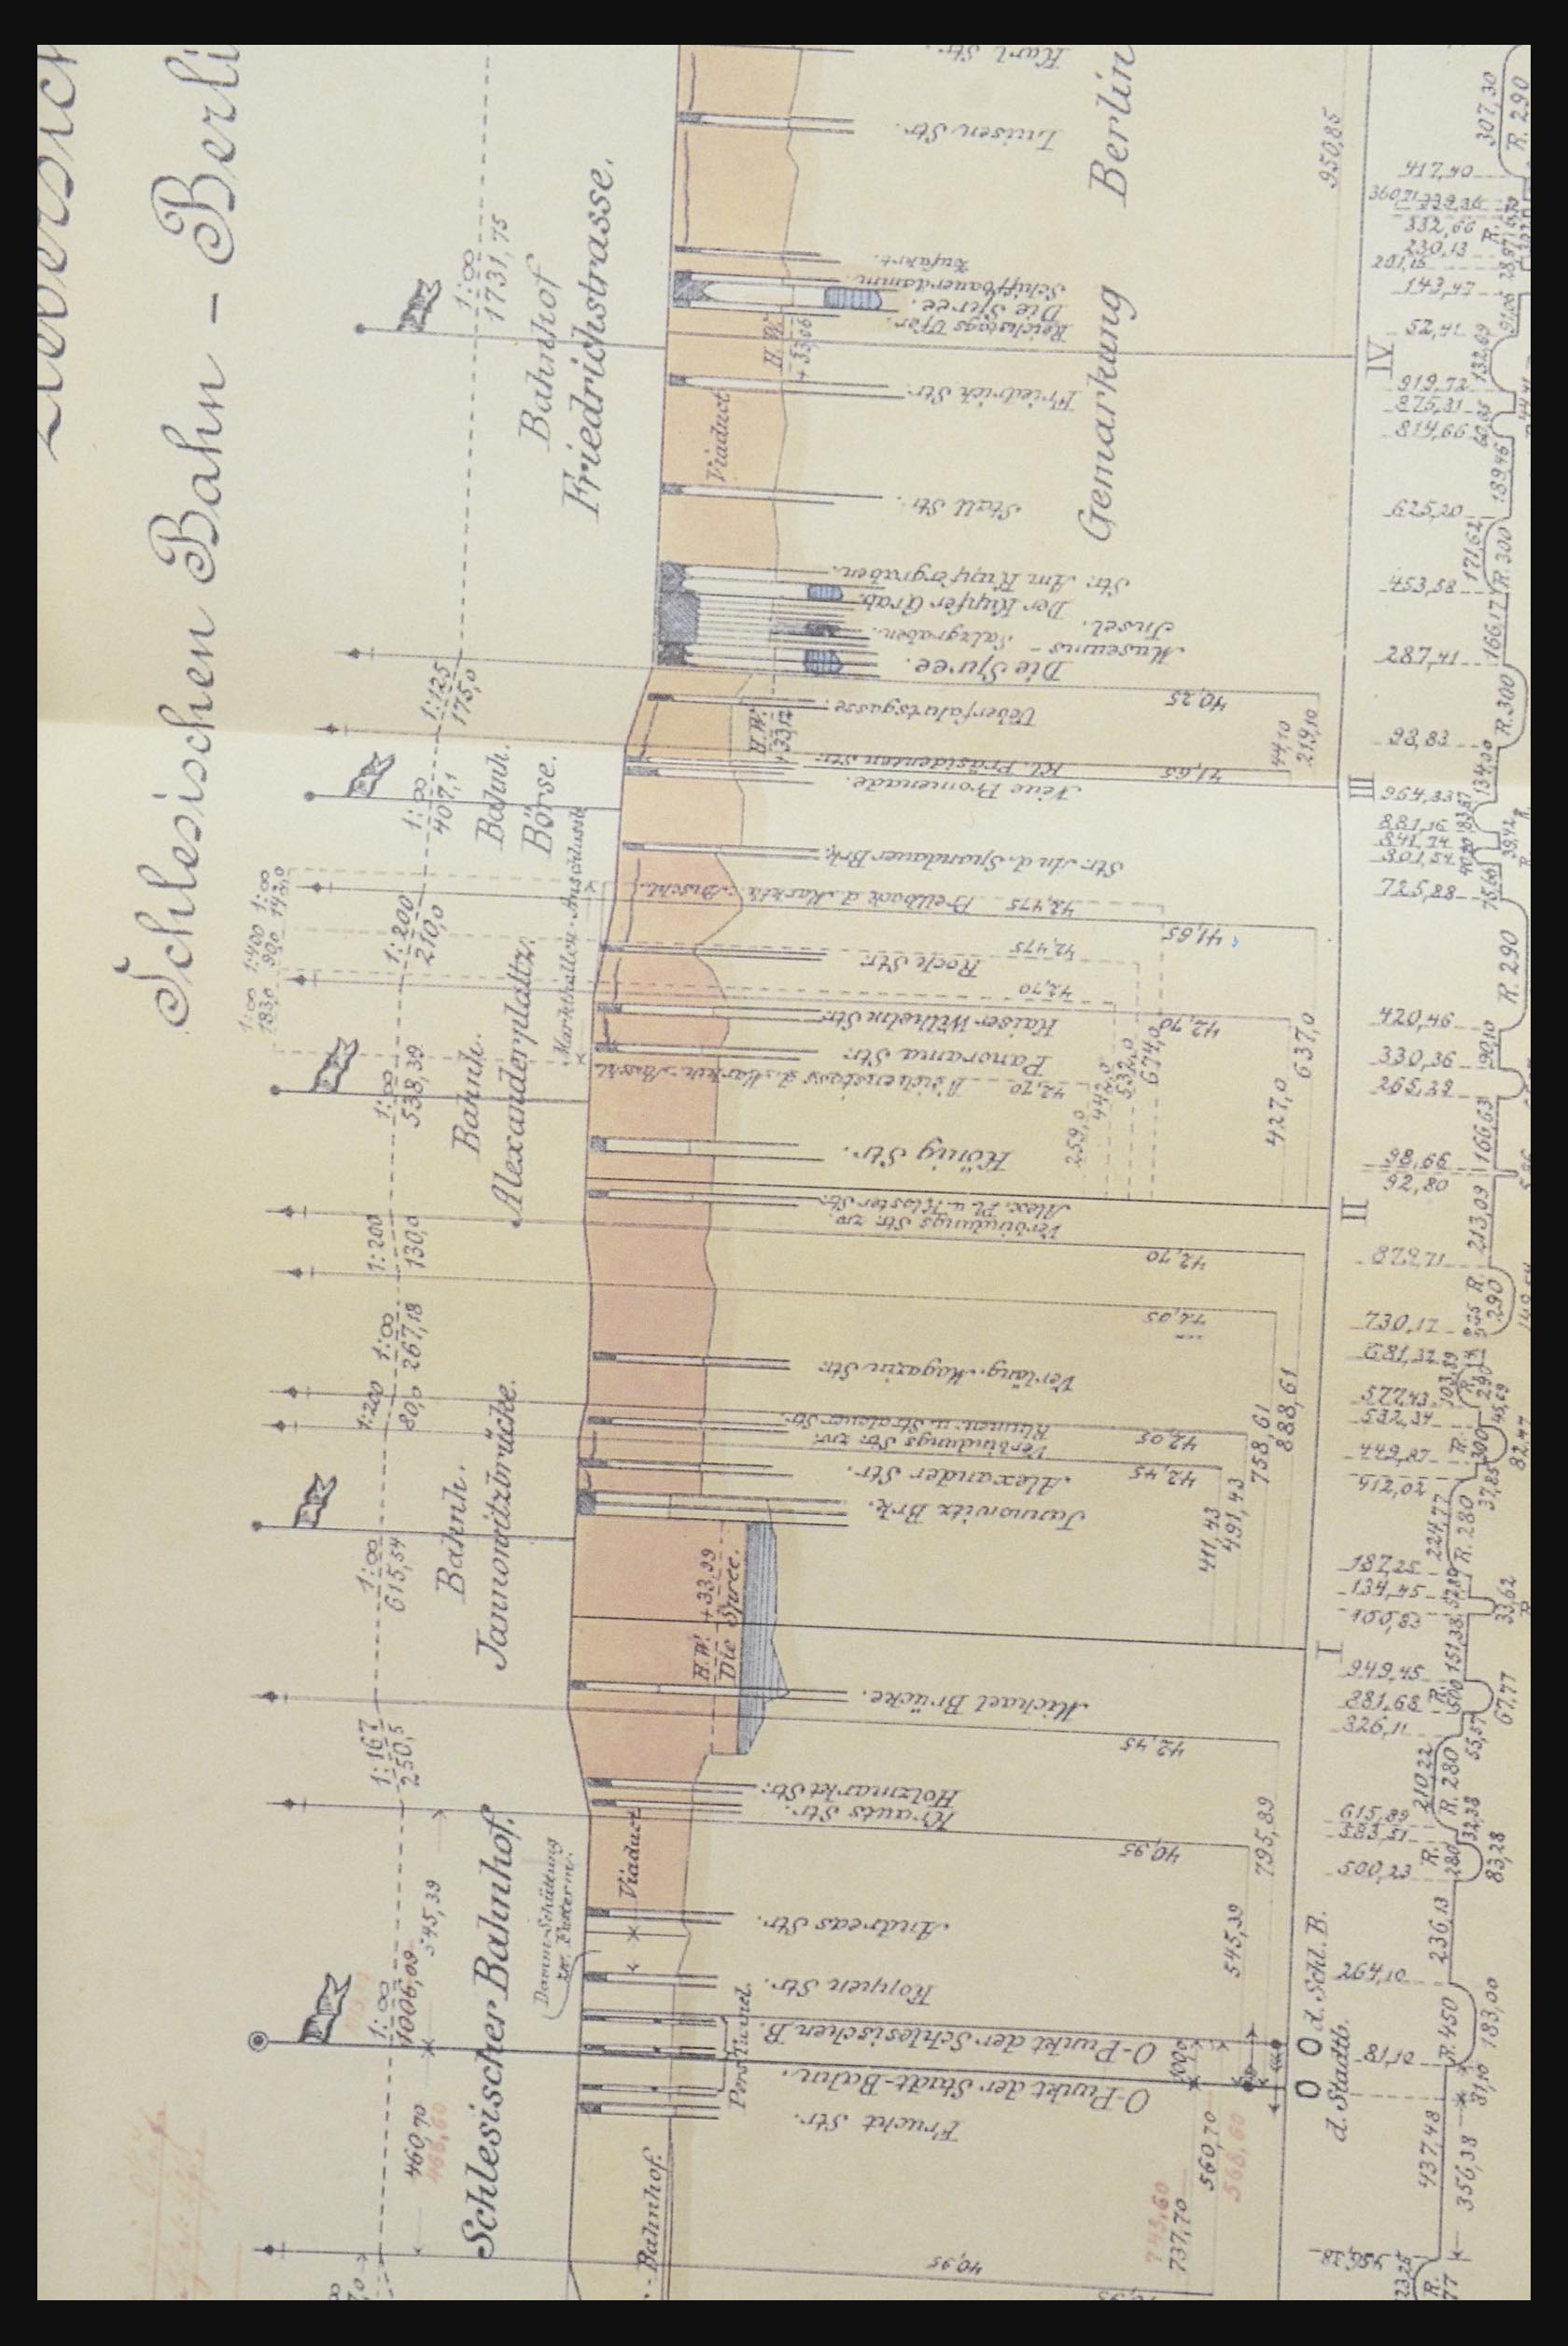 Schlesischen Bahn - Berli
Schlesischer Bahnhof.
Bahnh.
Jannowitzbrücke.
Bahnh.
Alexanderplatz.
Bahnh.
Börse.
Bahnhof
Friedrichstrasse.
1:∞
1006,09
460,70
545,39
1:167
250,5
1:∞
615,54
1:200
80,0
1:∞
267,18
1:200
130,0
1:∞
538,39
1:200
210,0
1:∞
407,1
1:125
175,0
1:∞
1731,75
1:∞
183,0
1:400
90,0
1:∞
142,0
Markthallen-Anschluss
Damm-Schüttung
Bahnhof.
Viaduct
H.W. +33,99
Die Spree.
H.W.
+33,12
Viaduct
H.W.
+33,06
Frucht Str.
O-Punkt der Stadt-Bahn.
O-Punkt der Schlesischen B.
Pers. Tunnel.
Koppen Str.
Andreas Str.
Krauts Str.
Holzmarkt Str.
Michael Brücke.
Jannowitz Brk.
Alexander Str.
Verbindungs Str. zw.
Blumen u. Stralauer Str.
Verläng. Magazin Str.
Verbindungs Str. zw.
Alex. Pl. u. Kloster Str.
König Str.
Panorama Str.
Kaiser Wilhelm Str.
Roch Str.
Str. An d. Spandauer Brk.
Neue Promenade.
Kl. Präsidenten Str.
Ueberfahrtsgasse.
Die Spree.
Museums-
Insel.
Salzgraben.
Der Kupfer Grab.
Str. Am Kupfergraben.
Stall Str.
Friedrich Str.
Reichstags Ufer.
Die Spree.
Schiffbauerdamm.
Zufahrt.
Luisen Str.
Karl Str.
Gemarkung Berlin
40,95
40,95
42,45
42,45
42,05
42,05
42,70
42,70
42,70
42,70
42,475
42,475
41,65
41,65
40,25
743,60
737,70
560,70
568,60
545,39
795,89
411,43
491,43
758,61
888,61
259,0
442,0
532,0
674,0
427,0
637,0
44,10
219,10
950,85
O O
d. Stadtb.
d. Schl. B.
I
II
III
IV
500,23
583,51
615,89
826,11
881,68
949,45
134,45
187,25
412,02
449,87
532,34
577,43
681,32
730,17
92,80
98,66
330,36
420,46
725,88
881,16
964,83
98,83
287,41
453,58
625,20
814,66
875,31
919,72
52,41
143,47
230,13
332,66
417,40
437,48
356,38
R. 450
183,00
236,13
R. 280
83,28
32,38
210,22
R. 280
55,57
R. 500
67,77
151,38
33,62
224,77
R. 280
37,85
R. 300
82,47
213,09
R. 290
166,63
90,10
R. 290
134,00
R. 300
166,17
R. 300
171,62
189,46
132,69
307,30
R. 290